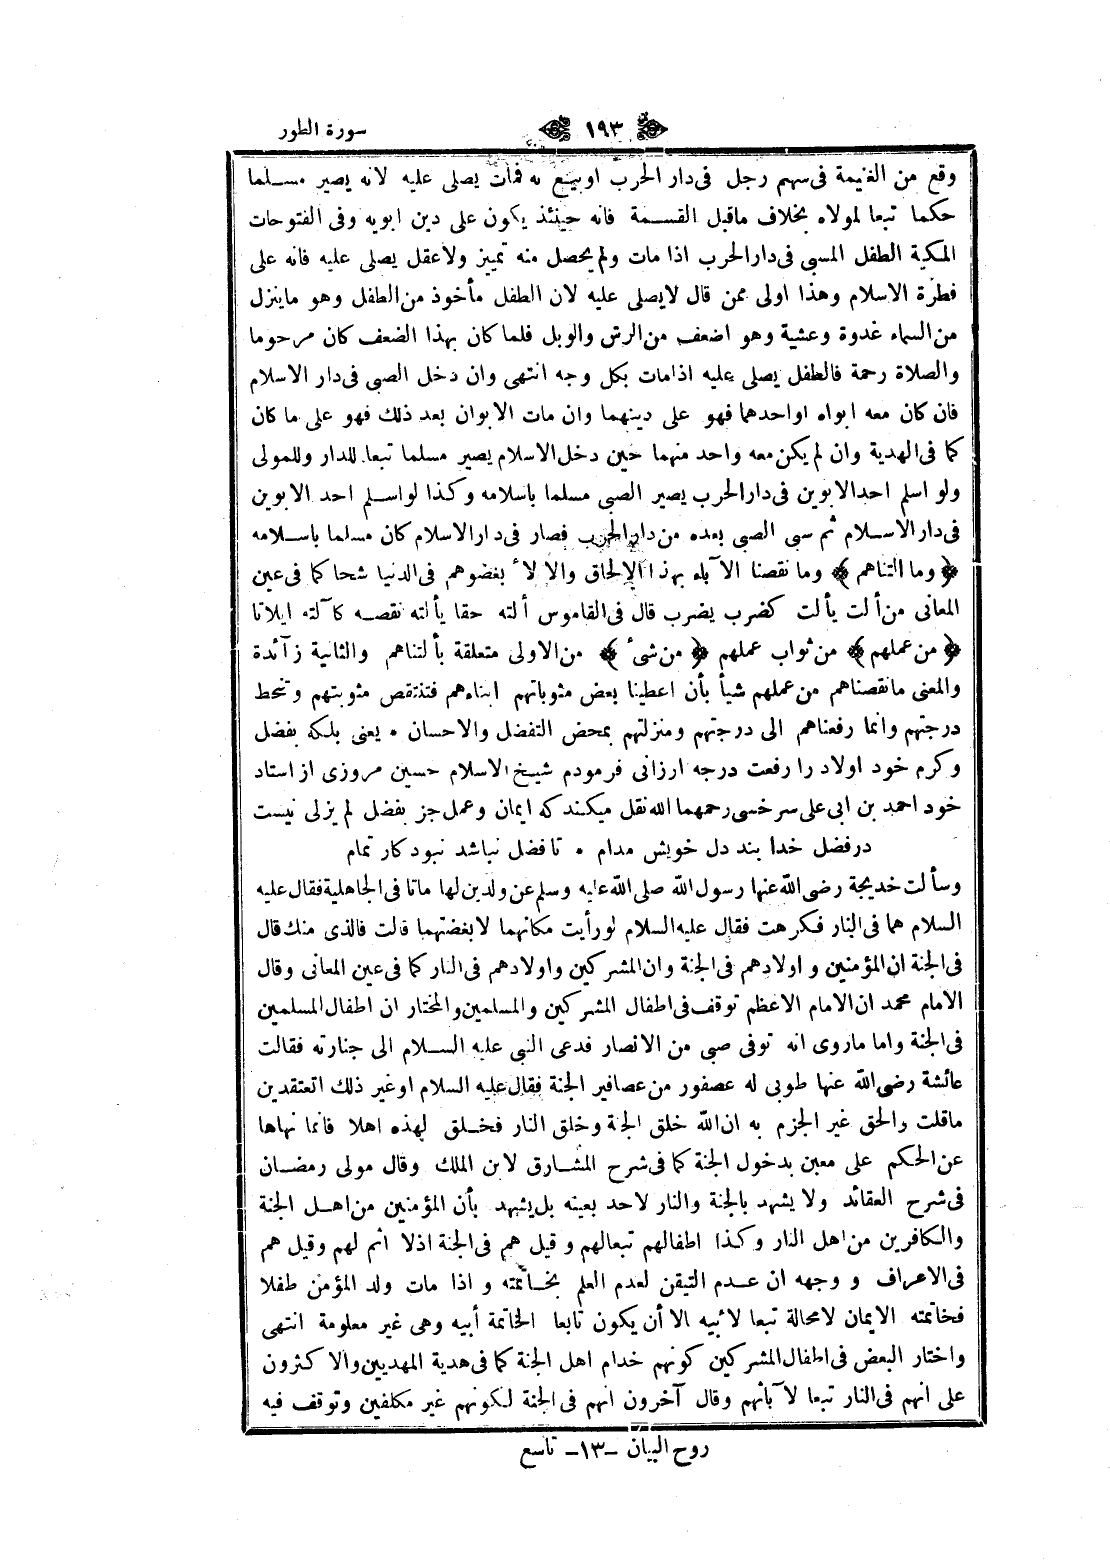 سورة الطور
١٩٣
وقع من الغنيمة فى سهم رجل فى دار الحرب او بيع به فمات يصلى عليه لانه يصير مسلما
حكما تبعا لمولاه بخلاف ماقبل القسمة فانه حينئذ يكون على دين ابويه وفى الفتوحات
المكية الطفل المسبى فى دار الحرب اذا مات ولم يحصل منه تمييز ولاعقل يصلى عليه فانه على
فطرة الاسلام وهذا اولى ممن قال لايصلى عليه لان الطفل مأخوذ من الطفل وهو ماينزل
من السماء غدوة وعشية وهو اضعف من الرش والوبل فلما كان بهذا الضعف كان مرحوما
والصلاة رحمة فالطفل يصلى عليه اذامات بكل وجه انتهى وان دخل الصبى فى دار الاسلام
فان كان معه ابواه اواحدهما فهو على دينهما وان مات الابوان بعد ذلك فهو على ما كان
كما فى الهدية وان لم يكن معه واحد منهما حين دخل الاسلام يصير مسلما تبعا للدار وللمولى
ولو اسلم احد الابوين فى دار الحرب يصير الصبى مسلما باسلامه وكذا لو اسلم احد الابوين
فى دار الاسلام ثم سبى الصبى بعده من دار الحرب فصار فى دار الاسلام كان مسلما باسلامه
﴿ وما التناهم ﴾ وما نقصنا الآباء بهذا الالحاق والا لأ بغضوهم فى الدنيا شحا كما فى عين
المعانى من ألت يألت كضرب يضرب قال فى القاموس ألته حقا يألته نقصه كآلته ايلاتا
﴿ من عملهم ﴾ من ثواب عملهم ﴿ من شئ ﴾ من الاولى متعلقة بألتناهم والثانية زآئدة
والمعنى مانقصناهم من عملهم شيأ بأن اعطينا بعض مثوباتهم ابناءهم فتنتقص مثوبتهم وتنحط
درجتهم وانما رفعناهم الى درجتهم ومنزلتهم بمحض التفضل والاحسان • يعنى بلكه بفضل
وكرم خود اولاد را رفعت درجه ارزانى فرمودم شيخ الاسلام حسين مروزى از استاد
خود احمد بن ابى على سرخسى رحمهما الله نقل ميكند كه ايمان وعمل جز بفضل لم يزلى نيست
در فضل خدا بند دل خويش مدام • تا فضل نباشد نبود كار تمام
وسألت خديجة رضى الله عنها رسول الله صلى الله عليه وسلم عن ولدين لها ماتا فى الجاهلية فقال عليه
السلام هما فى النار فكرهت فقال عليه السلام لو رأيت مكانهما لابغضتهما قالت فالذى منك قال
فى الجنة ان المؤمنين و اولادهم فى الجنة وان المشركين واولادهم فى النار كما فى عين المعانى وقال
الامام محمد ان الامام الاعظم توقف فى اطفال المشركين والمسلمين والمختار ان اطفال المسلمين
فى الجنة واما ماروى انه توفى صبى من الانصار فدعى النبى عليه السلام الى جنازته فقالت
عائشة رضى الله عنها طوبى له عصفور من عصافير الجنة فقال عليه السلام او غير ذلك اتعتقدين
ماقلت والحق غير الجزم به ان الله خلق الجنة وخلق النار فخلق لهذه اهلا فانما نهاها
عن الحكم على معين بدخول الجنة كما فى شرح المشارق لابن الملك وقال مولى رمضان
فى شرح العقائد ولا يشهد بالجنة والنار لاحد بعينه بل يشهد بأن المؤمنين من اهل الجنة
والكافرين من اهل النار وكذا اطفالهم تبعالهم و قيل هم فى الجنة اذلا اثم لهم وقيل هم
فى الاعراف و وجهه ان عدم التيقن لعدم العلم بخاتمته و اذا مات ولد المؤمن طفلا
فخاتمته الايمان لامحالة تبعا لابيه الا أن يكون تابعا لخاتمة أبيه وهى غير معلومة انتهى
واختار البعض فى اطفال المشركين كونهم خدام اهل الجنة كما فى هدية المهديين والاكثرون
على انهم فى النار تبعا لآبائهم وقال آخرون انهم فى الجنة لكونهم غير مكلفين وتوقف فيه
روح البيان -١٣- تاسع